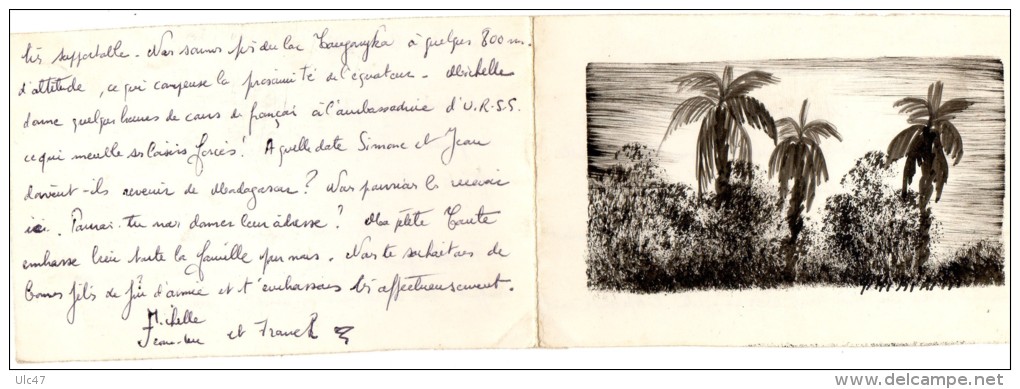 très supportable. Nous sommes près du lac Tanganyka à quelques 800 m.
d'altitude, ce qui compense la proximité de l'équateur. Michelle
donne quelques heures de cours de français à l'ambassadrice d'U.R.S.S.
ce qui meuble ses loisirs forcés! A quelle date Simone et Jean
doivent-ils revenir de Madagascar? Nous pourrions les recevoir
ici. Pourrais-tu nous donner leur adresse? Ma petite Tante
embrasse bien toute la famille pour nous. Nous te souhaitons de
bonnes fêtes de fin d'année et t'embrassons très affectueusement.
Michelle
Jean-Luc et Franck
Ulc47
www.delcampe.net